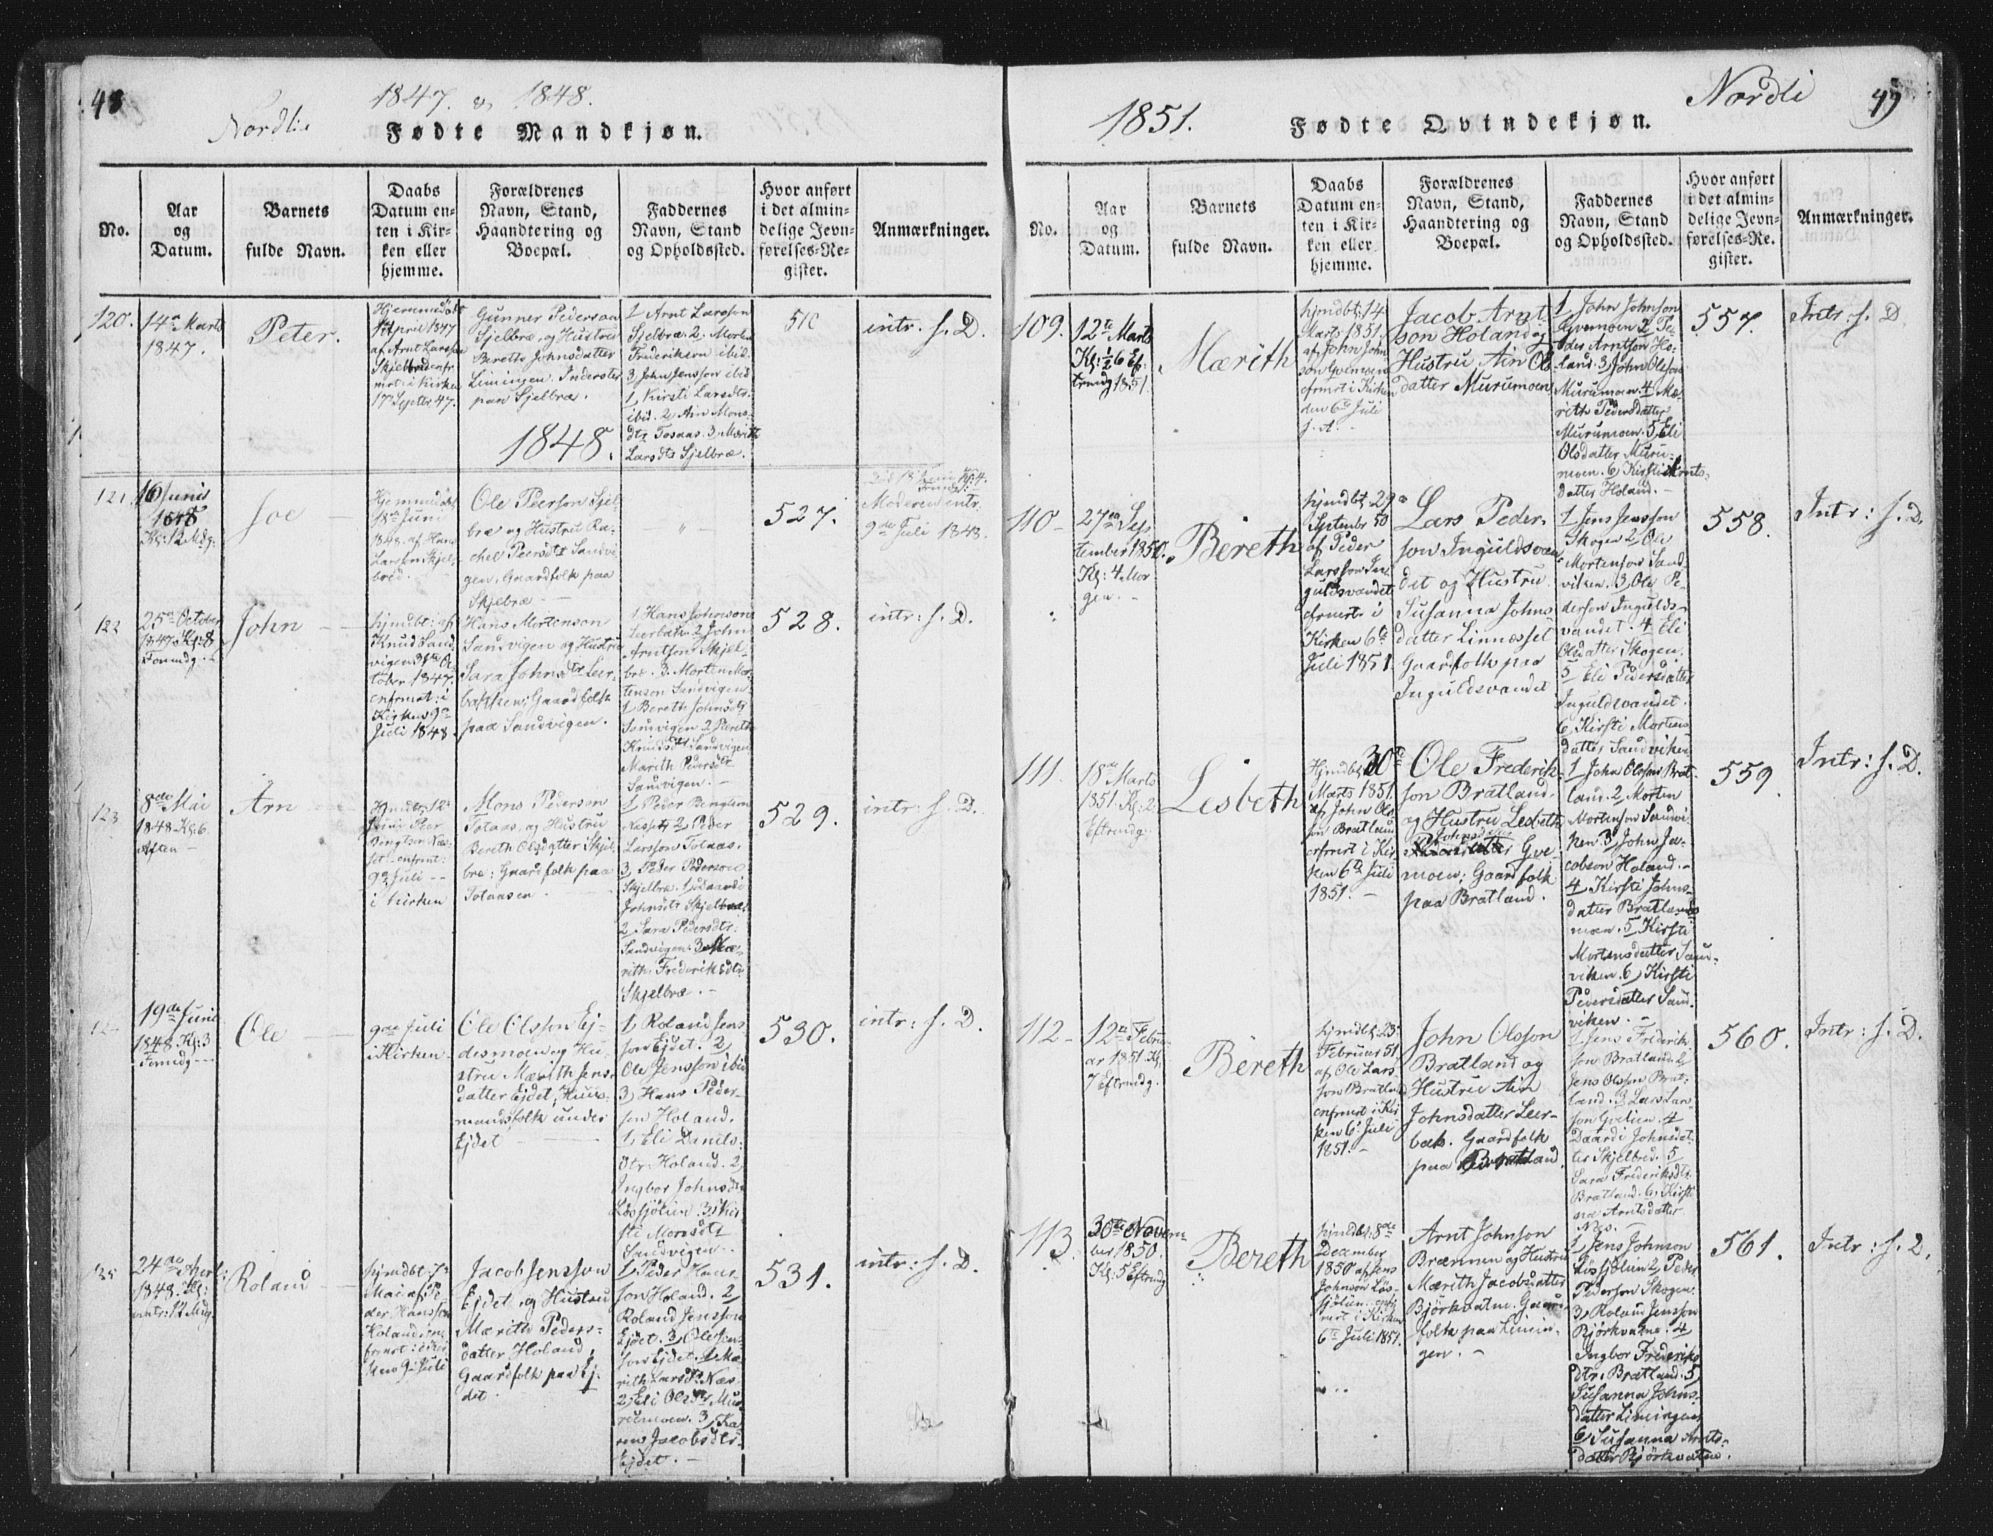 48
Nordlie
1847. & 1848.
Fødte Mandkjøn.
No.
Aar
og
Datum.
Barnets
fulde Navn.
Daabs
Datum en-
ten i Kir-
ken eller
hjemme.
Forældrenes
Navn, Stand,
Haandtering og
Boepæl.
Faddernes
Navn, Stand
og Opholdssted.
Hvor anført
i det almin-
delige Jevn-
førelses-Re-
gister.
Anmærkninger.
120.
14de Marts
1847.
Peter.
Hjemmedøbt
April 1847
af Arnt Larssen
Skjelbred
i Kirken
17 Septbr 47.
Gunner Pederson
Sjelbræ, og Hustru
Beretto Johnsdatter
Limingen. Inderster
paa Sjelbræ.
1 Arnt Larsson
Sjelbræ 2. Morten
Frederiksen ibid.
3 John Jensson ibid
1, Kirsti Larsdtr.
ibid. 2 Ain Mons-
dtr Tosaas. 3, Mærith
Larsdtr Sjelbræ.
510
intr. s. D.
1848.
121
16 Junii
1848
Kl: 12 Mdg.
Joe
Hjemmedøbt
18de Juni
1848 af Hans
Larsen Skjel-
bred.
Ole Peerson Sjel-
bræ og Hustru Ra-
chel Peersdtr Sandvi-
gen, Gaardfolk paa
Skjelbræ
527.
Moderen intr.
9de Juli 1848.
122
25de October
1847. Kl: 8
Formdg.
John
hjmdbt: af
Knud Sand-
vigen 31te Oc-
tober 1847.
cnfrmt: i
Kirken 9de
Juli 1848.
Hans Mortenson
Sandvigen og Hustru
Sara Johnsdtr Leer-
bakken; Gaardfolk
paa Sandvigen.
1 Hans Johnson
Leerbak 2 John
Arntson Skjel-
bre. 3. Morten Mor-
tenson Sandvigen
1 Bereth Johnsdtr
Sandvigen 2 Bereth
Knudsdtr Sandvigen
Marith Pedersdtr
Sandvigen.
528.
intr: s. D.
123
8de Mai
1848. Kl: 6.
Aften
Arn
Juni Peer
Bengtson Næs-
set cnfrmt:
9de Juli
i Kirken
Mons Pederson
Totaas, og Hustru
Bereth Olsdatter Skjel-
bre: Gaardfolk paa
Totaasen
1 Peder Bengtson
Næsset 2, Peder
Larsson Totaas.
3, Peder Pederson
Skjelbræ. 1, Daardi
Johnsdtr Skjelbræ
2 Sara Pedersdtr:
Sandvigen. 3 Mæ-
rith Frederiksdtr
Skjelbræ.
529.
intr: s. D.
19de Juni
1848. Kl: 3
Formdg.
Ole
9de Juli
i Kirken
Ole Olsson Ej-
desmoen og Hu-
stru Mærith Jens-
datter Ejdet, Huus-
mandsfolk under
Ejdet
1, Roland Jens-
son Ejdet. 2,
Ole Jensson ibid
3, Hans Peder-
sen Holand.
1, Eli Daniels-
dtr. Holand. 2,
Ingbor Johnsdtr
Løssjølien. 3, Kir-
sti Monsdtr
Sandvigen.
530.
intr: s. D.
125
24de April
1848. Kl:
12 Mdg.
Roland
hjmdbt: 7de
Mai af Pe-
der Hansson
Holand cn-
frmt: i Kir-
ken 9 Juli
Jacob Jensson
Ejdet, og Hustru
Mærith Peders-
datter Holand,
Gaardfolk paa Ej-
det.
1, Peder Hans-
son Holand. 2
Roland Jensson
Ejdet. 3, Ole Jens-
son Ejdet. 1, Mæ-
rith Larsdtr Næs
2, Eli Olsdtr Mu-
rumoen. 3, Ka-
ren Jacobsdtr.
Ejdet.
531.
intr: s. D.
1851.
Nordli
49
Fødte Qvindekjøn.
No.
Aar
og
Datum.
Barnets
fulde Navn.
Daabs
Datum en-
ten i Kir-
ken eller
hjemme.
Forældrenes
Navn, Stand,
Haandtering og
Boepæl.
Faddernes
Navn, Stand
og Opholdssted.
Hvor anført
i det almin-
delige Jevn-
førelses-Re-
gister.
Anmærkninger.
109.
12te Marts
Kl: ½6 Ef-
trmdg 1851.
Mærith
hjmdbt 14
Marts 1851.
af John John-
son Gvemoen
cfrmrt i Kirken
den 6te Juli
s. A.
Jacob Arnt-
son Holand og
Hustru Ain Ols-
datter Murumoen
1 John Johnson
Gvemoen 2 Pe-
der Arntson Ho-
land. 3 John Olsson
Murumoen. 4 Mæ-
rith Pedersdatter
Murumoen. 5, Eli
Olsdatter Muru-
moen. 6 Kirsti Arnts-
datter Holand.
557.
Intr: s. D.
110
27de Sep-
tember 1850.
Kl: 4 Mor-
gen.
Bereth
hjmdbt. 29
Septembr 50
af Peder
Larsson In-
guldsvandet
cfrmrt i
Kirken 6te
Juli 1851
Lars Peder-
son Inguldsvan-
det og Hustru
Susanna Johns-
datter Linnæsset
Gaardfolk paa
Inguldsvandet
1 Jens Jensson
Skogen 2 Ole
Mortenson Sand-
viken. 3, Ole Pe-
derson Ingulds-
vandet. 4 Eli
Olsdatter Skogen.
5 Eli Pedersdatter
Inguldsvandet.
6 Kirsti Mortens-
datter Sandviken
558.
Intr: s. D.
111
18de Marts
1851. Kl: 2
Eftrmdg.
Lisbeth
Hjmdbt 30te
Marts 1851.
af John Ols-
son Bratland
cnfrmrt i Kir-
ken 6te Juli
1851.
Ole Frederik-
son Bratland
og Hustru Lesbeth
Johnsdatter Gve-
moen; Gaardfolk
paa Bratland.
1 John Olsson Brat-
land. 2 Morten
Mortenson Sandvi-
ken 3 John Ja-
cobson Holand.
4 Kirsti Johns-
datter Bratlands-
moen. 5 Kirsti
Mortensdatter Sand-
viken. 6, Kirsti
Pedersdatter Sand-
viken.
559.
Intr: s. D.
112
12te Febru-
ar 1851. Kl.
7 Eftrmdg.
Bereth
hjmdbt. 23.
Februar 51.
af Ole Lars-
son Bratland
cnfrmrt i Kir-
ken 6te Juli
1851.
John Olsson
Bratland og
Hustru Ain
Johnsdatter Leer-
bak. Gaardfolk
paa Bratland
1 Jens Frederik-
son Bratland. 2
Jens Olsson Brat-
land. 3 Lars Lars-
son Gvelien. 4
Daardi Johnsdat-
ter Skjelbred. 5
Sara Frederiksdtr
Bratland. 6, Kirsti-
na Arntsdatter
Næs.
560.
Intr: s. D.
113
30te Novem-
ber 1850.
Kl: 5 Eftrmdg
Bereth
hjmdbt. 8de
December
1850 af Jens
Johnson Løs-
sjølien
i Kirken
6te Juli 1851.
Arnt Johnson
Brænnen og Hustru
Mærith Jacobsdatter
Bjørkvatne. Gaard-
folk paa Limin-
gen.
1, Jens Johnson
Løssjølien 2, Peder
Pederson Skogen.
3, Roland Jensson
Bjørkvatne. 4
Ingbor Frederiks-
dtr. Bratland. 5
Susanna Johns-
datter Limingen
6, Susanna Arnts-
datter Bjørkvatne.
561.
Intr: s. D.